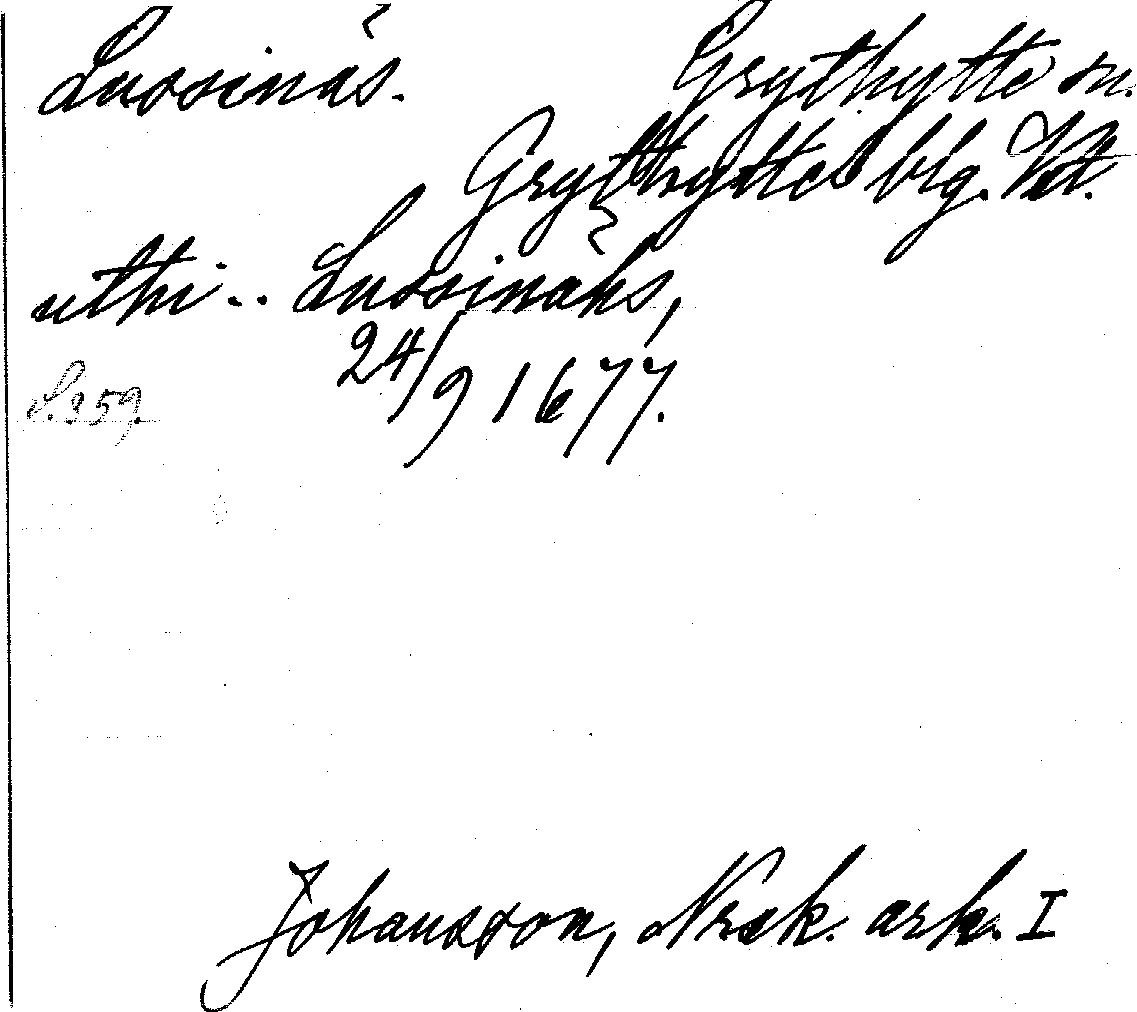 Lussinäs. Grythytte sn.
Grythytte blg. Vstm.
uthi .. Lussinähs,
24/9 1677.
S. 359.
Johansson, Norak. ark. I